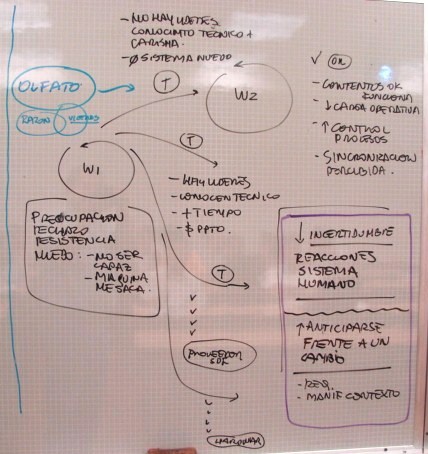 - NO HAY LIDERES,
CONOCIMTO TÉCNICO +
CARISMA.
- Ø SISTEMA NUEVO
OLFATO
RAZON
T
W2
✓ OK
- CONTENTOS OK
FUNCIONA
- ↓ CARGA OPERATIVA
- ↑ CONTROL
PROCESOS
- SINCRONIZACION
PERCIBIDA.
W1
T
- HAY LIDERES
- CONOCEN TECNICO
- + TIEMPO
- $ PPTO.
PREOCUPACION
RECHAZO
RESISTENCIA
MIEDO: - NO SER
CAPAZ
- MAQUINA
ME SACA.
T
↓ INCERTIDUMBRE
REACCIONES
SISTEMA
HUMANO
PROVEEDOR
↑ ANTICIPARSE
FRENTE A UN
CAMBIO
- REQ.
- MANIF CONTEXTO
HARDWARE